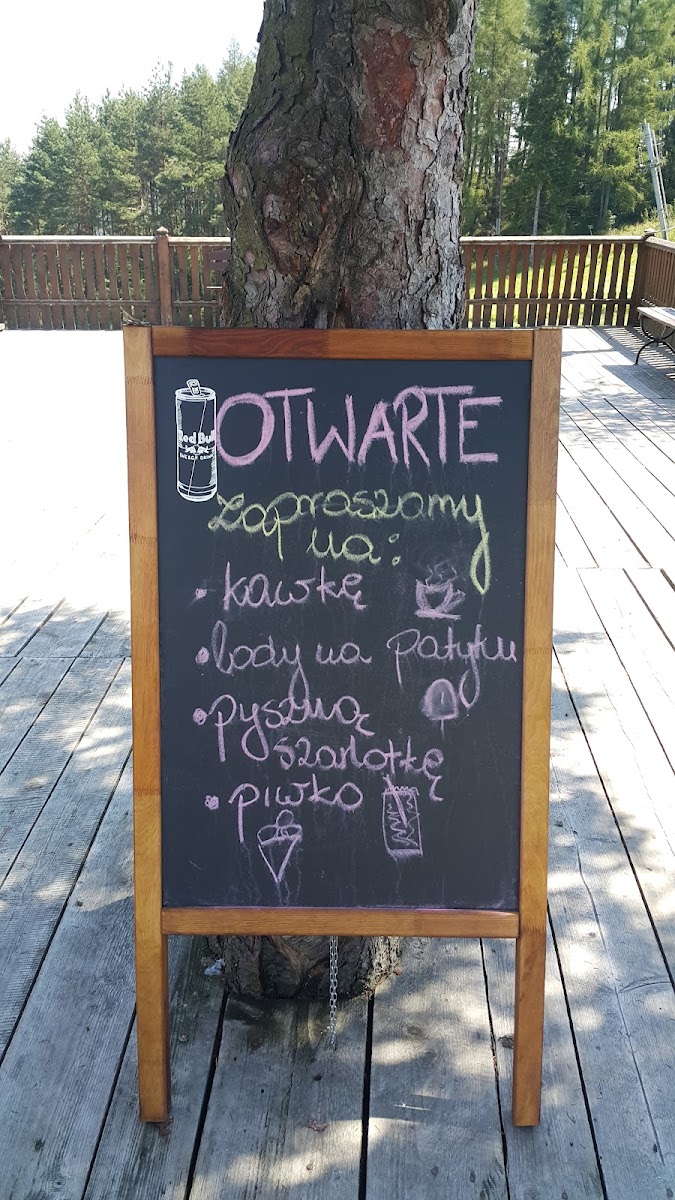 Red Bull
ENERGY DRINK
OTWARTE
Zapraszamy
na:
• kawkę
• lody na patyku
• pyszną
szarlotkę
• piwko